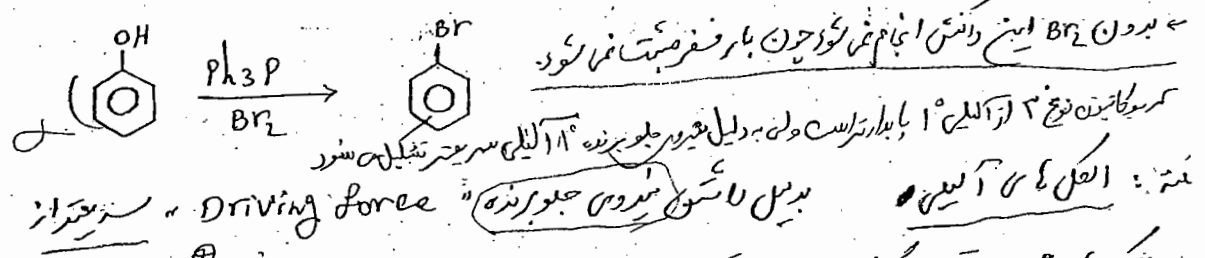 OH
Br
Ph3P
Br2
← بدون Br2 این واکنش انجام نمی شود چون بار فسفر مثبت نمی شود.
کربوکاتیون نوع ۳ از آلیلی ۱° پایدارتر است ولی به دلیل نیروی جلو برنده ۱° آلیلی سریعتر تشکیل می شود
نکته: الکل های آلیلی بدلیل داشتن نیروی جلو برنده "Driving force" سریعتر از
⊕